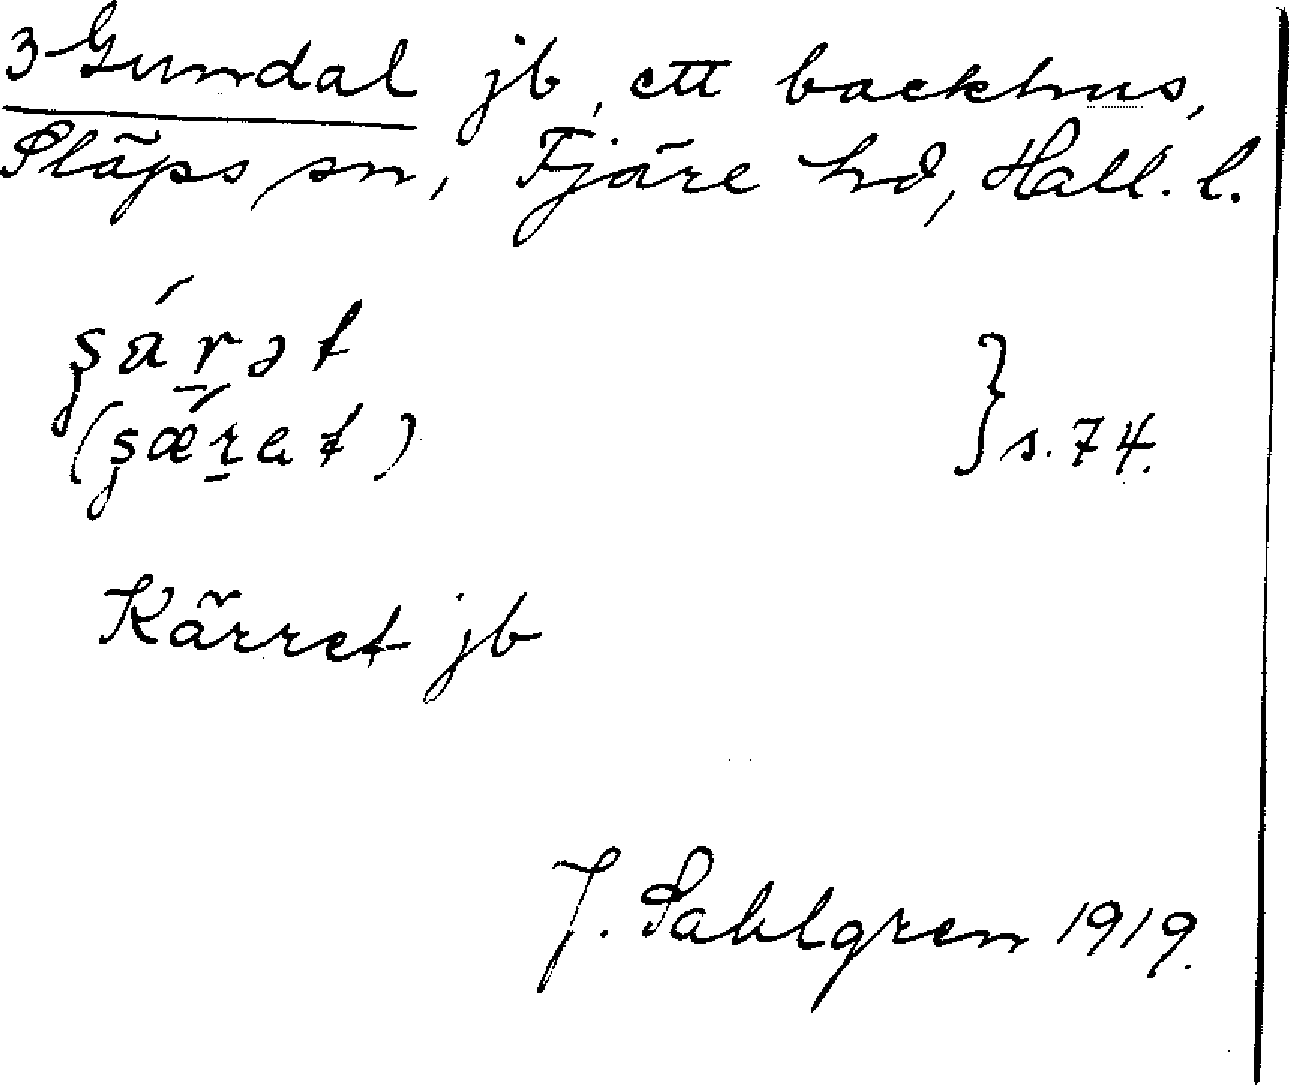 3 Gumdal jb, ett backhus,
Släps sn, Fjäre hd, Hall. l.
s. 74.
Kärret jb
J. Sahlgren 1919.